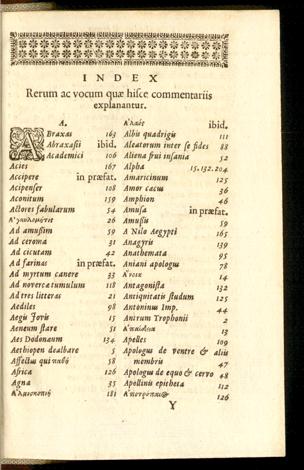 INDEX
Rerum ac vocum quæ hisce commentariis
explanantur.
A.
ABraxas 163
Abraxasii ibid.
Academici 106
Acies 167
Accipere in præfat.
Acipenser 108
Aconitum 159
Actores fabularum 54
26
Ad amussim 59
Ad ceroma 31
Ad cicutam 42
Ad farinas in præfat.
Ad myrtum canere 33
Ad novercæ tumulum 118
Ad tres litteras 21
Aediles 98
Aegis Jovis 15
Aeneum stare 51
Aes Dodonæum 134
Aethiopen dealbare 5
Asellus qui 58
Africa 126
Agna 35
181
ibid.
Albis quadrigis 111
Aleatorum inter se fides 88
Aliena frui insania 52
Alpha 15. 132. 204
Amaricinum 125
Amor cæcus 36
Amphion 46
Amusa in præfat.
Amussis 59
A Nilo Aegypti 165
Anagyris 139
Anathemata 95
Aniani apologus 78
14
Antagonista 132
Antiquitatis studum 125
Antoninus Imp. 44
Antrum Trophonii 2
13
Apelles 109
Apologus de ventre & aliis
membris 47
Apologus de equo & cervo 48
Apollinis epitheta 112
126
Y